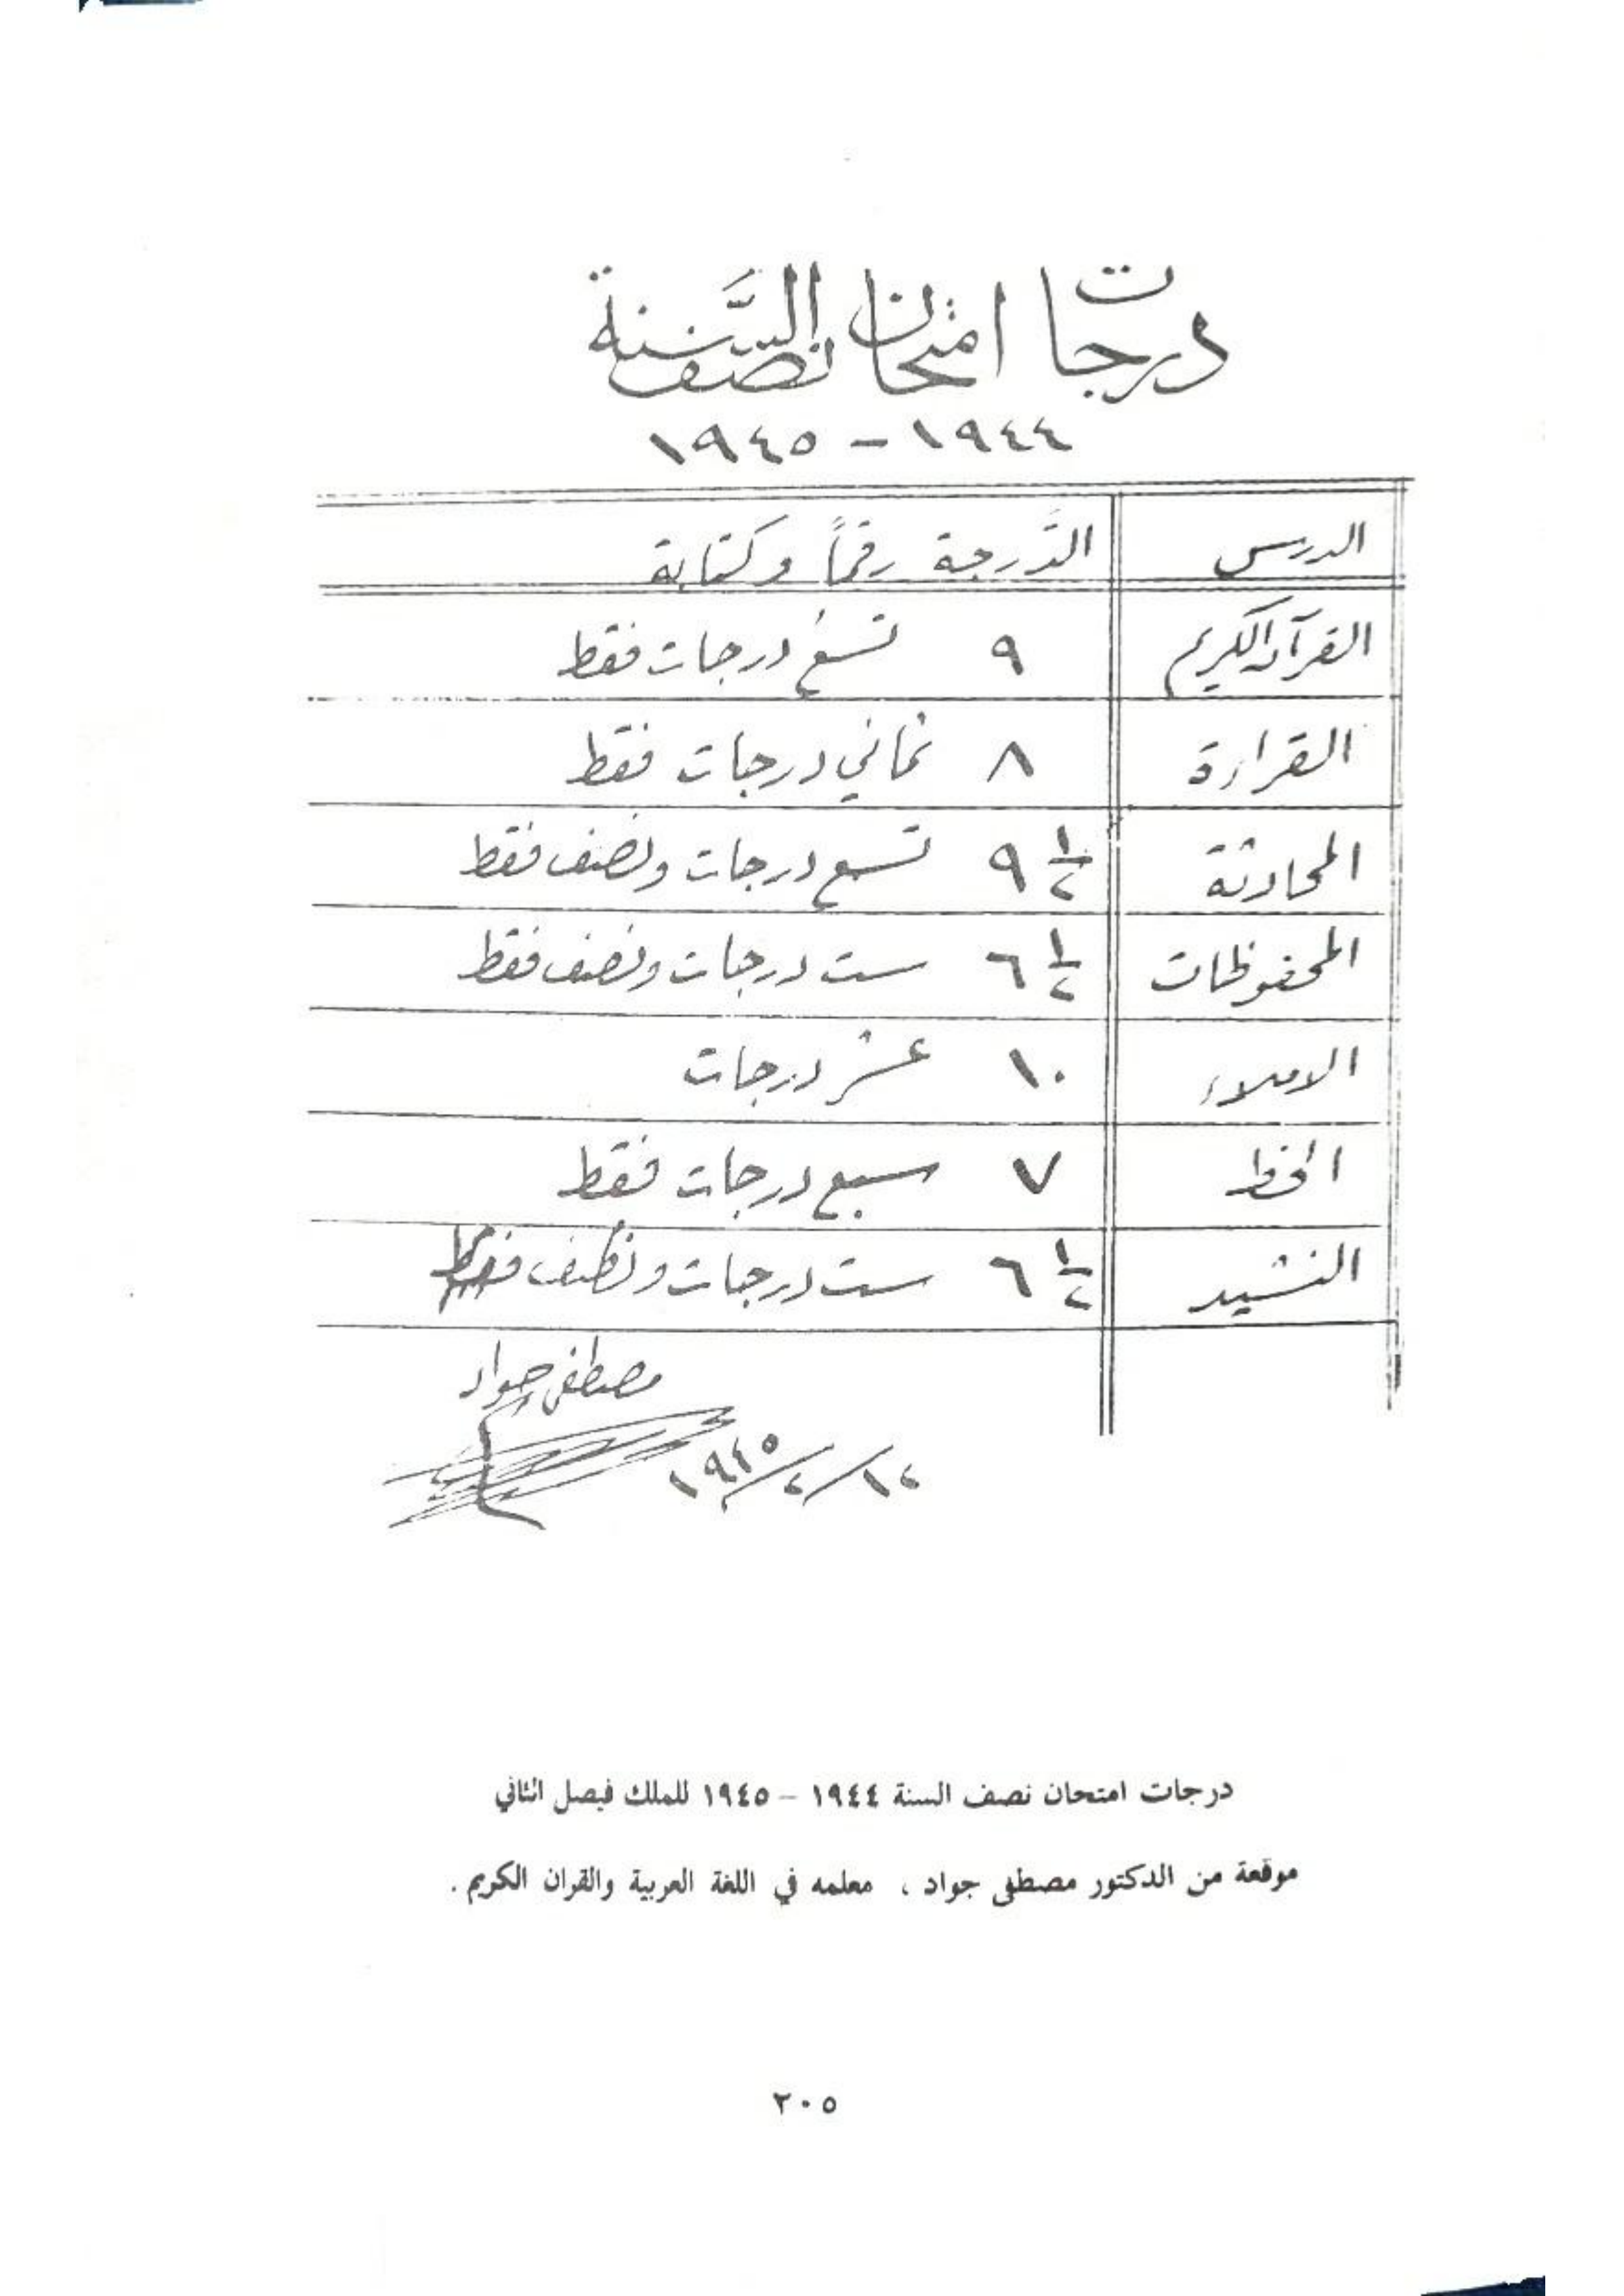 درجات امتحان نصف السَّنة
١٩٤٤ - ١٩٤٥
الدرس الدَّرجة رقماً وكتابة
القرآن الكريم ٩ تسع درجات فقط
القراءة ٨ ثماني درجات فقط
المحادثة ٩ ١/٢ تسع درجات ونصف فقط
المحفوظات ٦ ١/٢ ست درجات ونصف فقط
الاملاء ١٠ عشر درجات
الخط ٧ سبع درجات فقط
النشيد ٦ ١/٢ ست درجات ونصف فقط
مصطفى جواد
١٢/٢/١٩٤٥
درجات امتحان نصف السنة ١٩٤٤ – ١٩٤٥ للملك فيصل الثاني
موقعة من الدكتور مصطفى جواد ، معلمه في اللغة العربية والقران الكريم .
٢٠٥